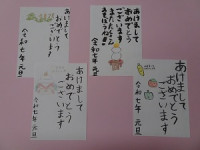 あけまして
おめでとう
ございます
令和七年 元旦
あけまして
おめでとう
ございます
令和七年 元旦
あけまして
おめでとう
ございます
令和七年 元旦
あけまして
おめでとう
ございます
令和七年 元旦